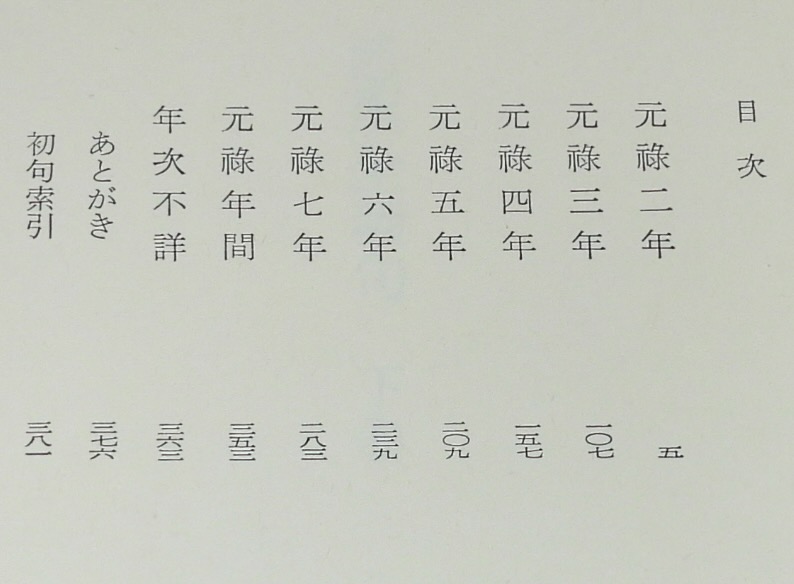 目次
元祿二年 五
元祿三年 一〇七
元祿四年 一五七
元祿五年 二〇九
元祿六年 二三九
元祿七年 二八三
元祿年間 三五三
年次不詳 三六三
あとがき 三七六
初句索引 三八一